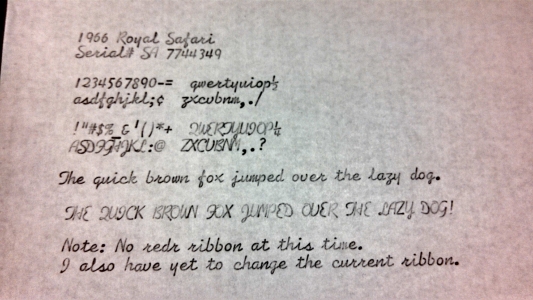 1966 Royal Safari
Serial# SA 7744349
1234567890-= qwertyuiop½
asdfghjkl;¢ zxcvbnm,./
!"#$%_&'()*+ QWERTYUIOP¼
ASDFGHJKL:@ ZXCVBNM,.?
The quick brown fox jumped over the lazy dog.
THE QUICK BROWN FOX JUMPED OVER THE LAZY DOG!
Note: No redr ribbon at this time.
I also have yet to change the current ribbon.